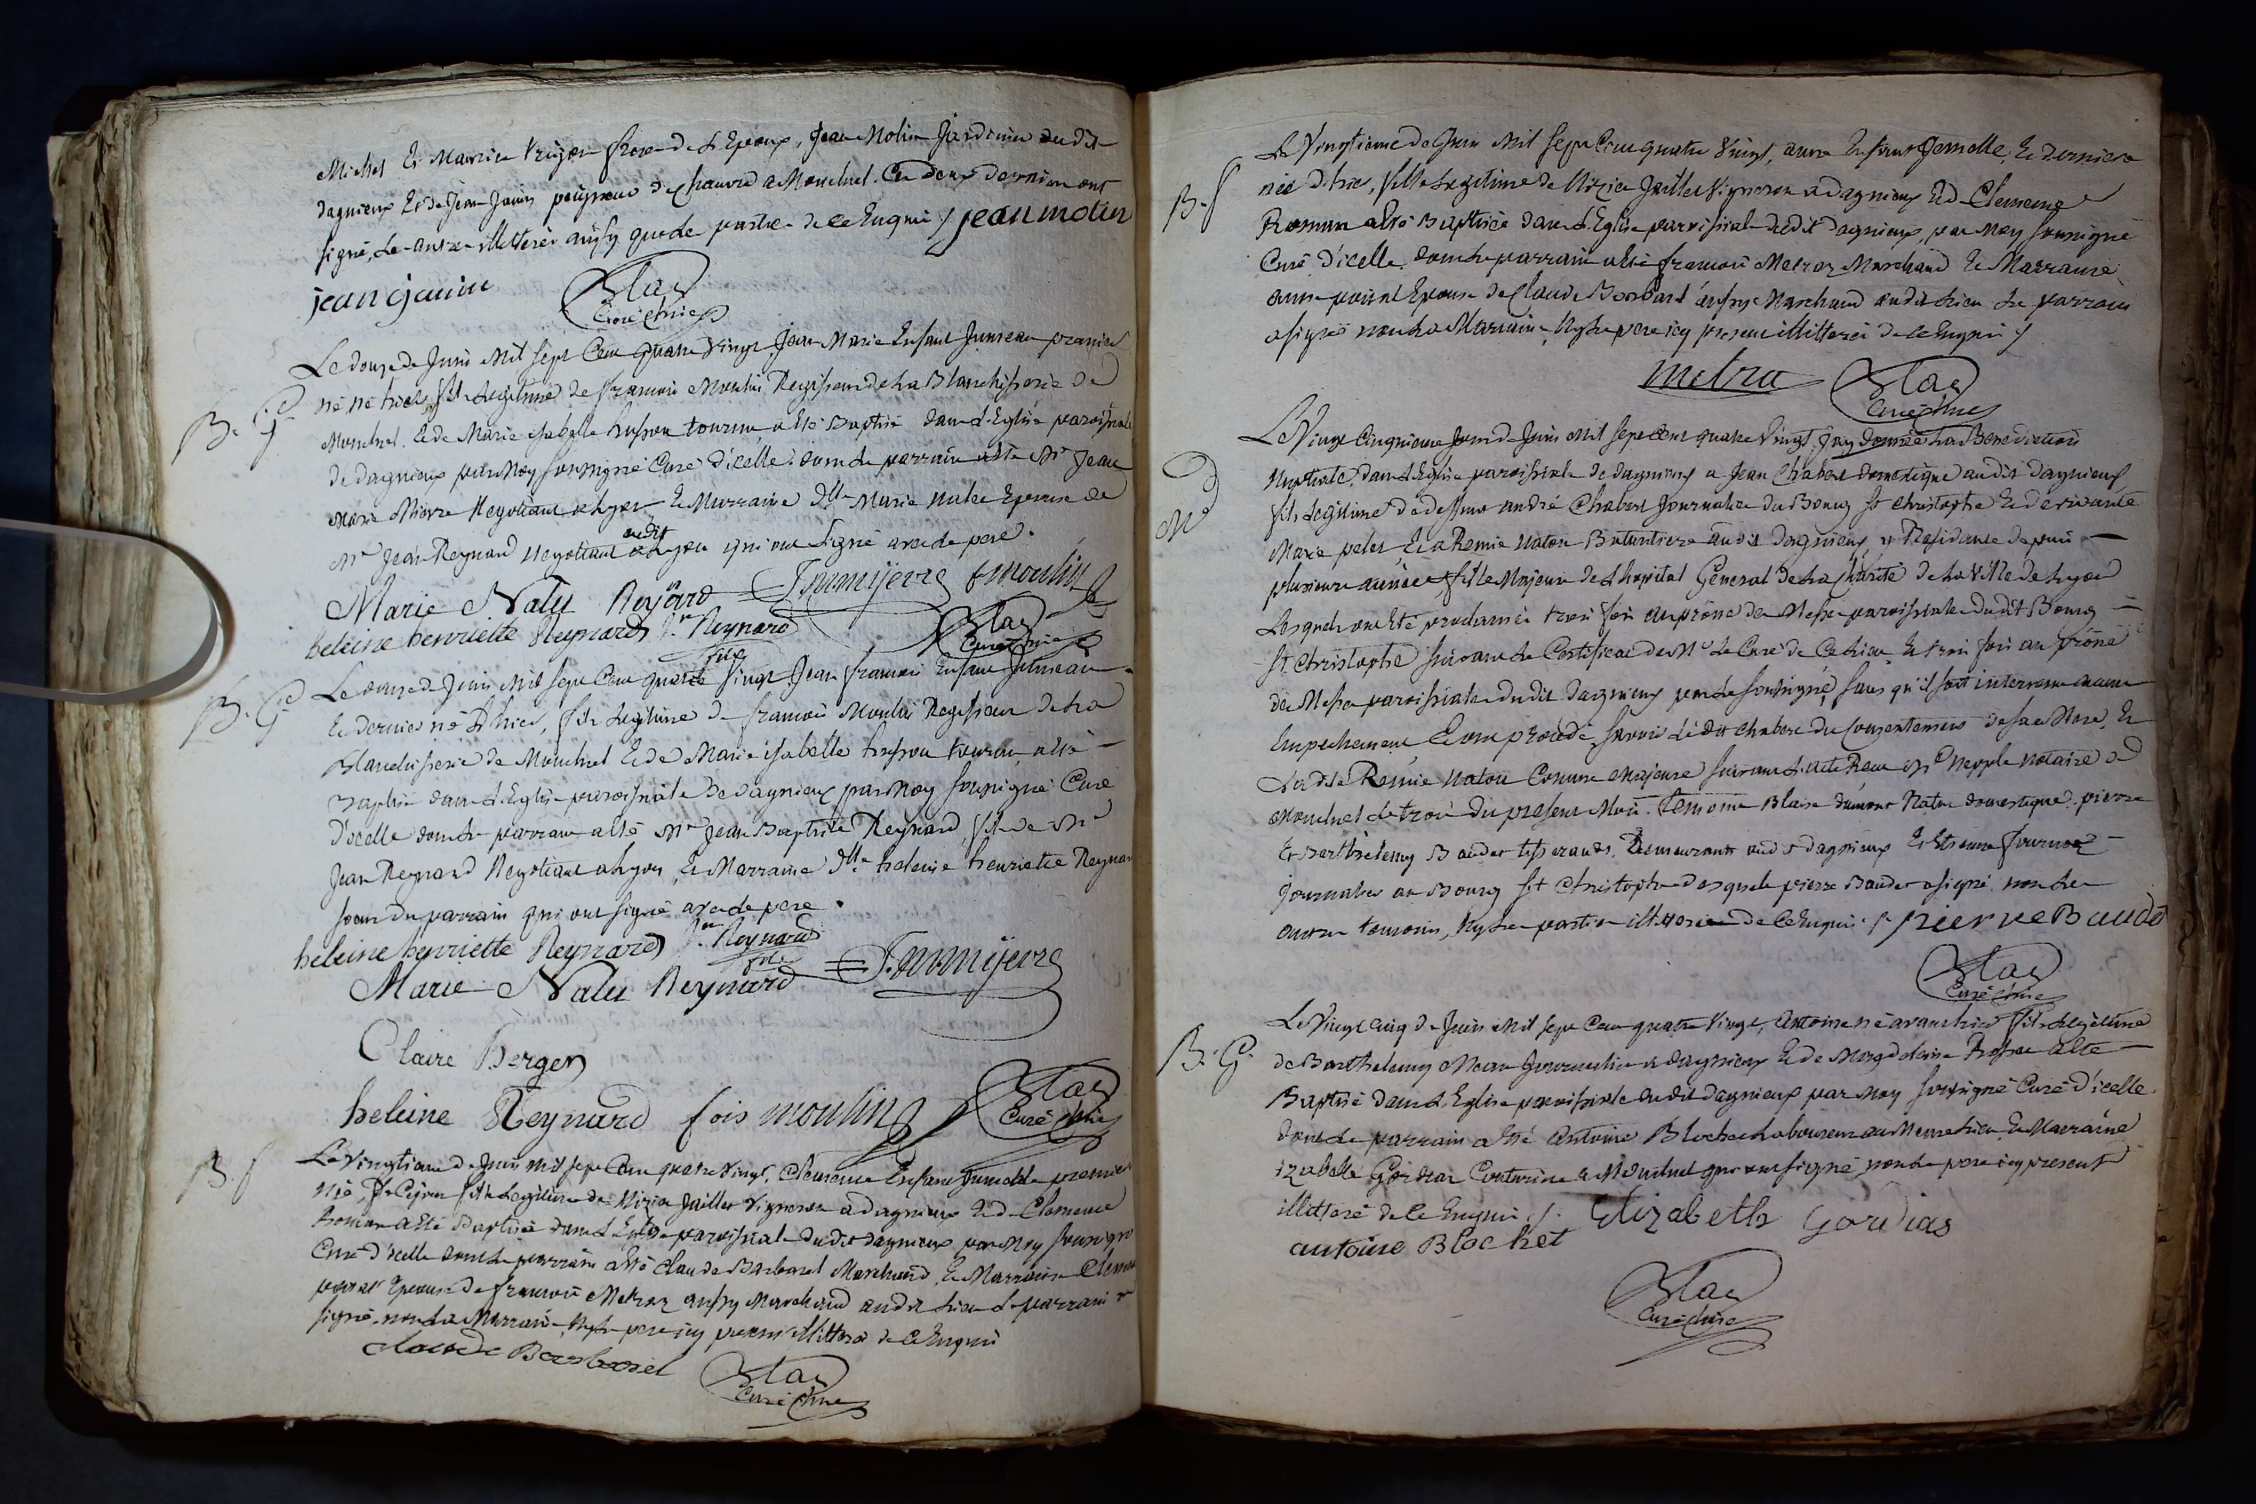 Michel Et Maurice frere de L'Epoux, Jean Molin Jardinier audit
dagnieux Et de Jean Janin peigneur de chanvre a Montluel. Ces deux derniers ont
signé, Les autres illitterés ainsy que les parties de ce Enquis / jean molin
jean janin
Curé
Le douze de Juin Mil Sept Cent quatre Vingt, Jean Marie Enfant Jumeau premier
B. G.
né hier, fils Legitime de francois Moulin Regisseur de La Blanchisserie de
Montluel, Et de Marie isabelle tournu a Eté Baptisé dans L'Eglise paroissiale
de dagnieux par Moy soussigné Curé d'icelle dont Le parrain a Eté Mr Jean
Marie Negotiant a Lyon Et Marraine dlle Marie Epouse de
audit
Mr Jean Reynard Negotiant a Lyon qui ont signé avec Le pere.
Marie Naly Reynard f moulin
heleine henriette Reynard Jn Reynard
fils
Curé
B. G.
Le douze de Juin Mil Sept Cent quatre Vingt Jean francois Enfant Jumeau
Et dernier né d'hier, fils Legitime de francois Moulin Regisseur de La
Blanchisserie de Montluel Et de Marie isabelle tournu, a Eté
Baptisé dans L'Eglise paroissiale de dagnieux par Moy soussigné Curé
d'icelle dont Le parrain a Eté Mr Jean Baptiste Reynard, fils de Mr
Jean Reynard Negotiant a Lyon, Et Marraine dlle heleine henriette Reynard
soeur du parrain qui ont signé avec Le pere.
heleine henriette Reynard Jn Reynard
fils
Marie Naly Reynard
Claire Berger
heleine Reynard fois moulin
Curé
B. f
Le Vingtieme de Juin Mil Sept Cent quatre Vingt, Clemence Enfant Jumelle premiere
née, fille Legitime de Nizier Jaillet Vigneron a dagnieux Et de Clemence
Romun a Eté Baptisée dans L'Eglise paroissiale dudit dagnieux par Moy soussigné
Curé d'icelle dont Le parrain a Eté Claude Barbarel Marchand, Et Marraine
Epouse de francois Metraz aussy Marchand audit Lieu Le parrain a
signé non La Marraine, Ny Le pere icy present illitteré de ce Enquis
claude Barbarel
Curé
B. f
Le Vingtieme de Juin Mil Sept Cent quatre Vingt, autre Enfant Jemelle, Et derniere
née d'hier, fille Legitime de Nizier Jaillet Vigneron a dagnieux Et de Clemence
Romun a Eté Baptisée dans L'Eglise paroissiale dudit dagnieux, par Moy soussigné
Curé d'icelle, dont Le parrain a Eté francois Metraz Marchand Et Marraine
anne Epouse de Claude Barbarel aussy Marchand audit Lieu Le parrain
a signé non La Marraine, Ny Le pere icy present illitteré de ce Enquis /
metra
Curé
Le Vingt Cinquieme Jour de Juin Mil Sept Cent quatre Vingt, J'ay donné La Benediction
M
Nuptiale, dans L'Eglise paroissiale de dagnieux a Jean Chabert domestique audit dagnieux
fils Legitime de deffunt andré Chabert Journalier du Bourg St Christophe Et de vivante
Marie pelet, Et a Remie Naton audit dagnieux y Residante depuis
plusieurs années, fille Majeure de L'hopital General de La Charité de La Ville de Lyon
Lesquels ont Eté proclamés trois fois au prône des Messes paroissiales dudit Bourg
St Christophe suivant Le Certificat de Mr Le Curé de Ce Lieu, Et trois fois au prône
des Messes paroissiales dudit dagnieux par Le soussigné, sans qu'il soit intervenu aucun
Empechement, Et ont procédé, savoir Ledit Chabert du Consentement de sa Mere, Et
Ladite Remie Naton Comme Majeure suivant L'acte Recu Notaire de
Montluel Le trois du present Mois. temoins Blaise domestique, pierre
Et Barthelemy Baudet tisserands, demeurants audit dagnieux Et Etienne fournier
Journalier au Bourg St Christophe desquels pierre Baudet a signé, non Les
autres temoins, Ny Les parties illitterés de ce Enquis. / pierre Baudet
Curé
Le Vingt cinq de Juin Mil Sept Cent quatre Vingt, Antoine né avant hier fils Legitime
B. G.
de Barthelemy Journalier a dagnieux Et de Magdelaine a Eté
Baptisé dans L'Eglise paroissiale dudit dagnieux par Moy soussigné Curé d'icelle
dont Le parrain a Eté Antoine Blochet Laboureur au Meme Lieu, Et Marraine
izabelle Gordiaz Couturiere a Montluel qui ont signé, non Le pere icy present
illitteré de ce Enquis. /. Elizabeth Gordias
antoine Blochet
Curé